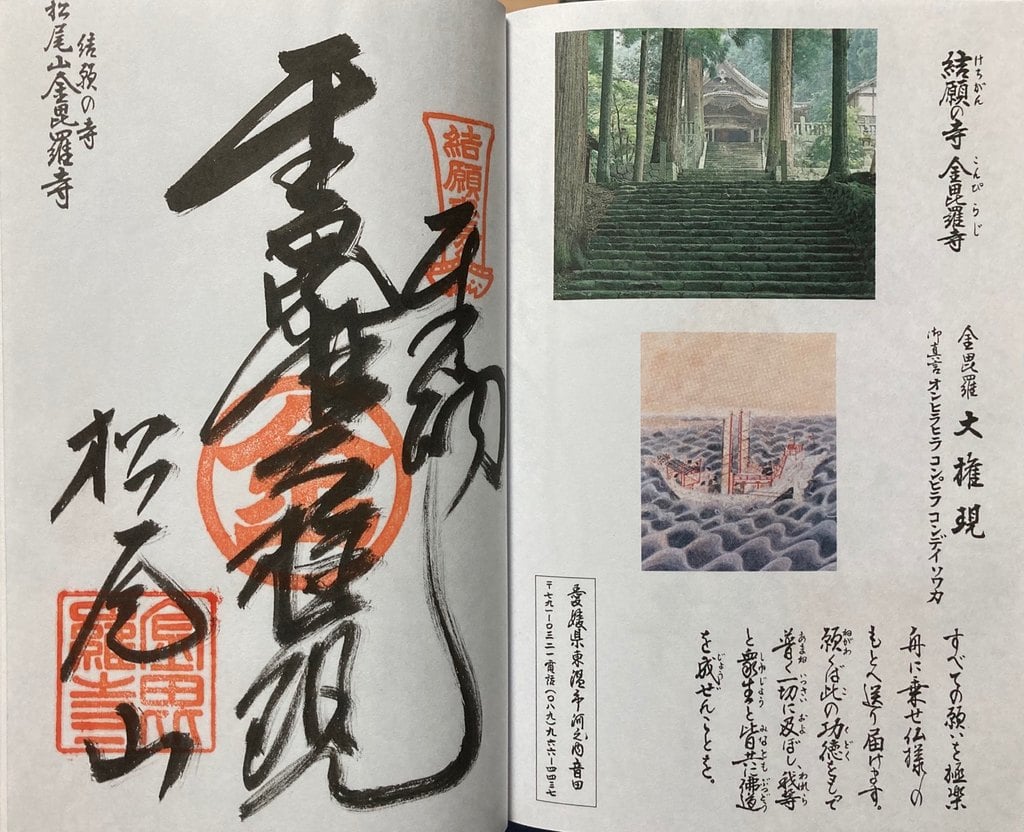 結願の寺 金毘羅寺
けちがん こんぴらじ
金毘羅 大権現
御真言 オンヒラヒラ コンピラ コンデイ ソワカ
すべての願いを極楽
舟に乗せ仏様への
もとへ送り届けます。
願くば此の功徳をもって
普く一切に及ぼし、我等
と衆生と皆共に佛道
を成ぜんことを。
愛媛県東温市河之内音田
〒七九一-〇三二一 電話(〇八九)九六六-四四三七
奉納
金毘羅大権現
松尾山
金毘羅寺
結願の寺
松尾山金毘羅寺